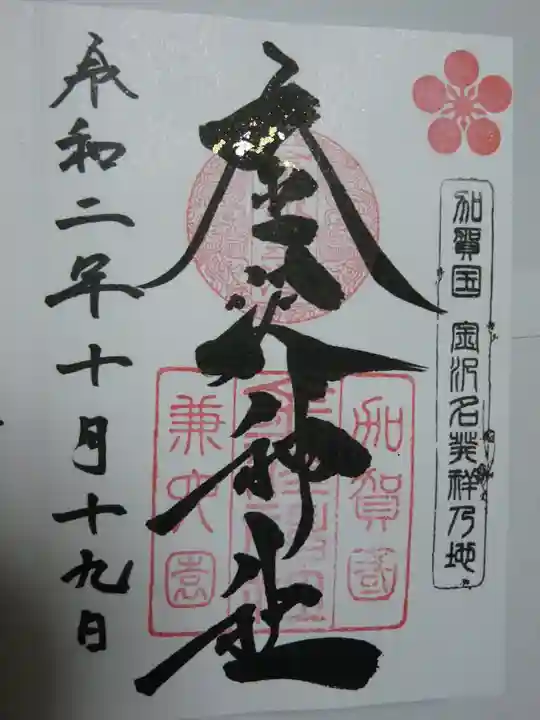 加賀国 金沢名発祥乃地
金沢神社
加賀國
兼六園
令和二年十月十九日